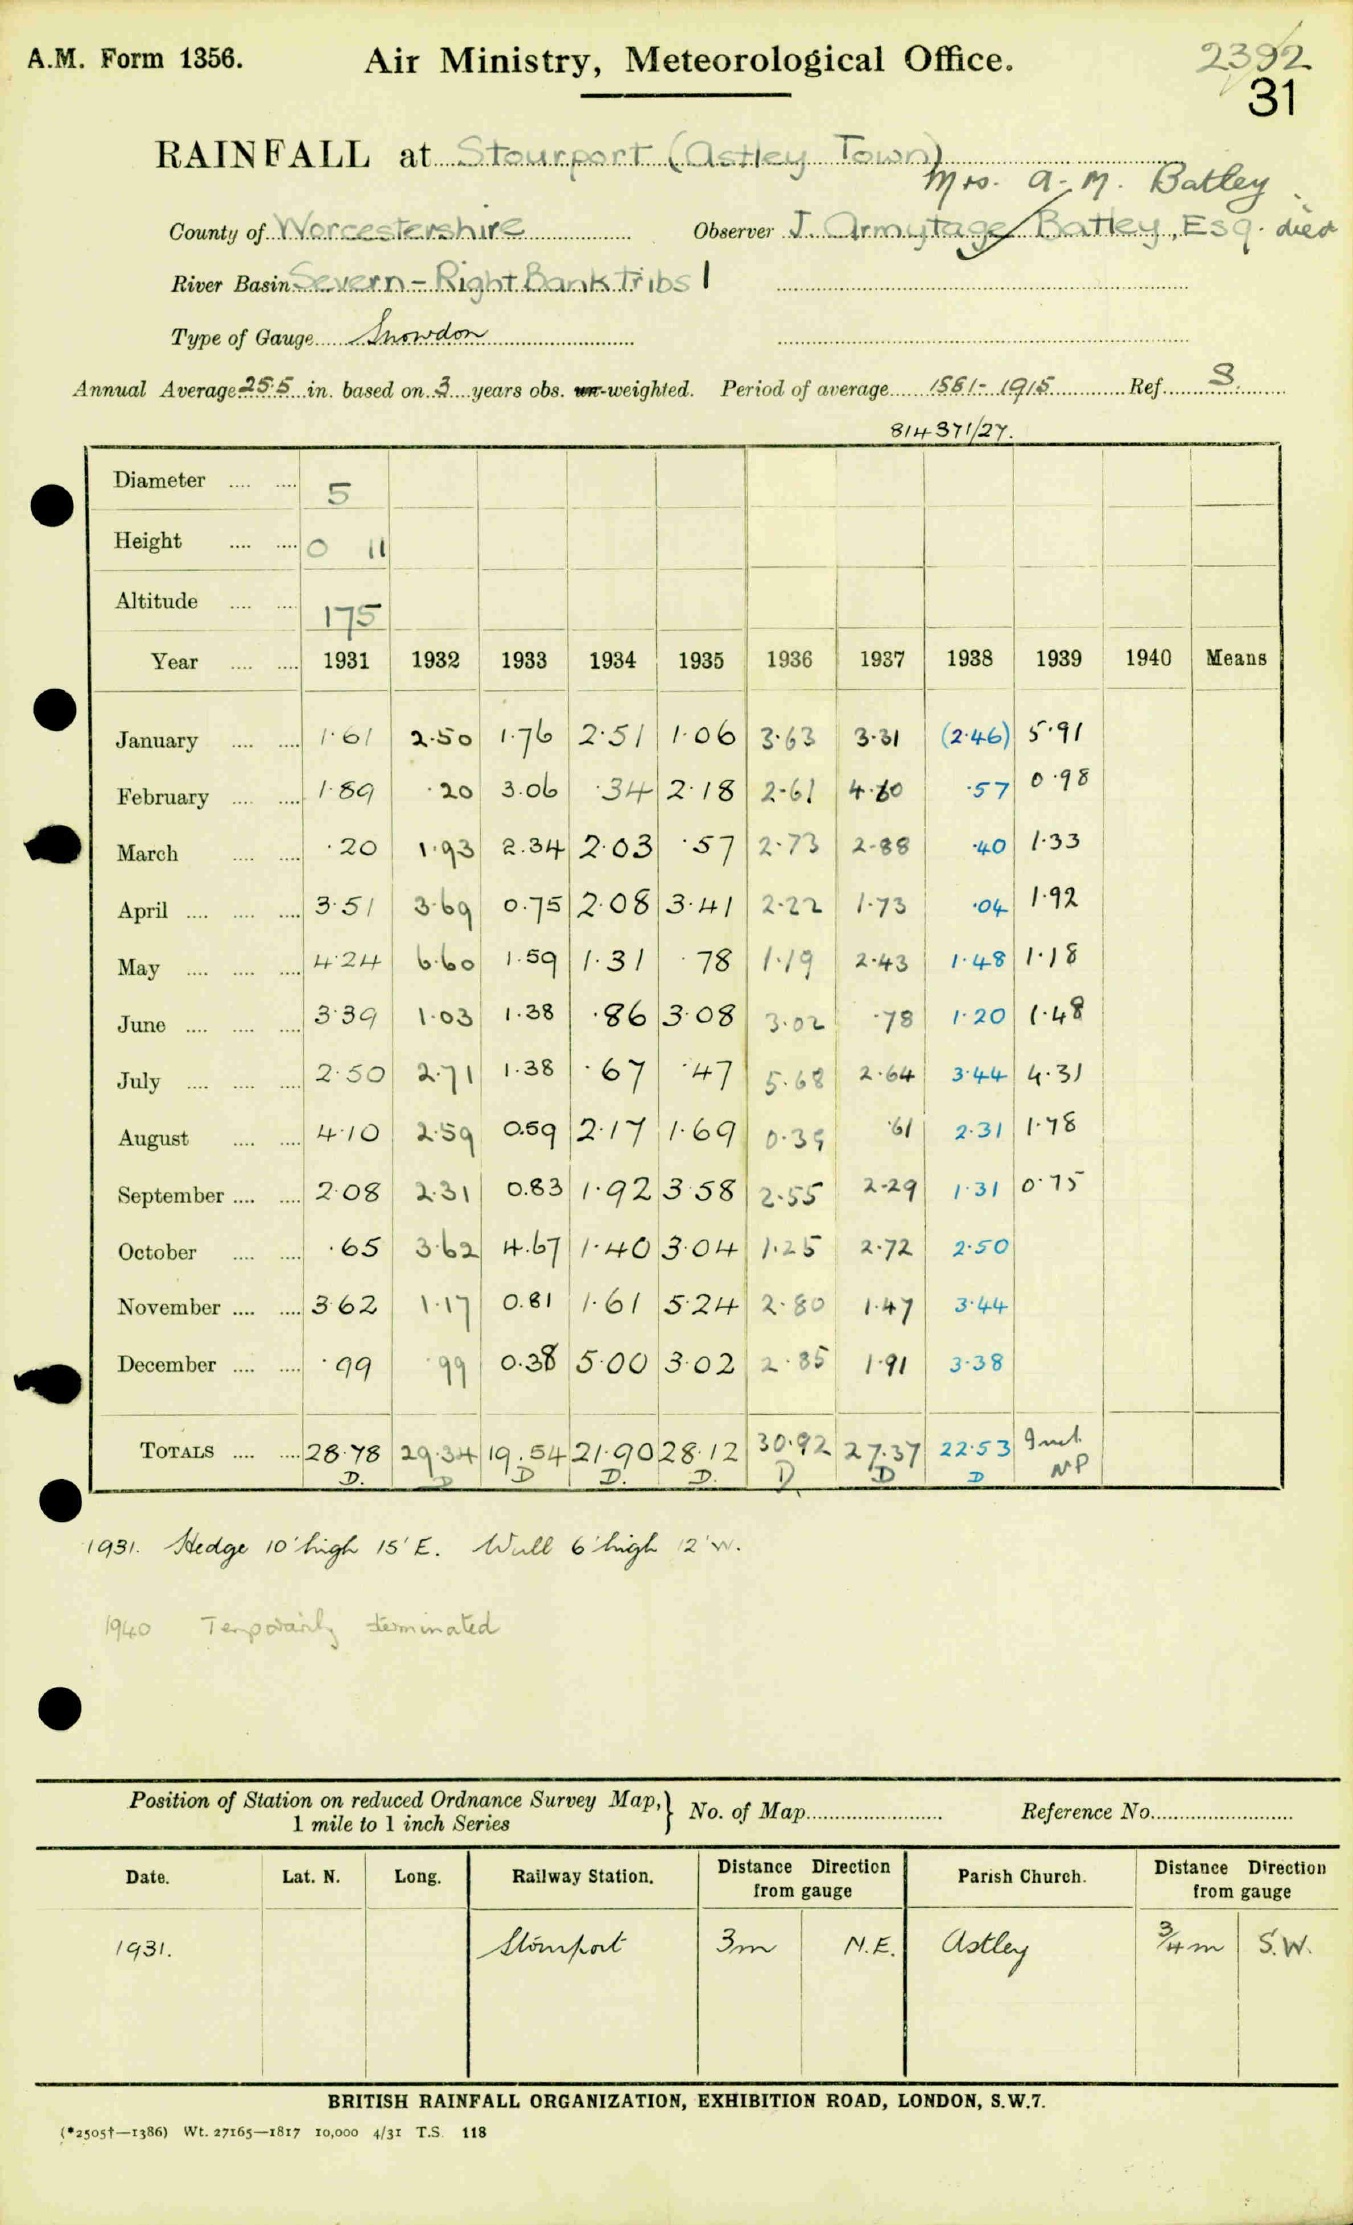 A.M. Form 1356. Air Ministry, Meteorological Office. 2392
31
RAINFALL at Stourport (Astley Town)
Mrs. A. M. Batley
County of Worcestershire Observer J. Armytage Batley, Esq. died
River Basin Severn - Right Bank Tribs 1
Type of Gauge Snowdon
Annual Average 25.5 in. based on 3 years obs. un-weighted. Period of average 1881-1915 Ref. S.
814371/27.
Diameter .... .... 5
Height .... .... 0 11
Altitude .... .... 175
Year .... .... 1931 1932 1933 1934 1935 1936 1937 1938 1939 1940 Means
January .... .... 1.61 2.50 1.76 2.51 1.06 3.63 3.31 (2.46) 5.91
February .... .... 1.89 .20 3.06 .34 2.18 2.61 4.60 .57 0.98
March .... .... .20 1.93 2.34 2.03 .57 2.73 2.88 .40 1.33
April .... .... .... 3.51 3.69 0.75 2.08 3.41 2.22 1.73 .04 1.92
May .... .... .... 4.24 6.60 1.59 1.31 .78 1.19 2.43 1.48 1.18
June .... .... .... 3.39 1.03 1.38 .86 3.08 3.02 .78 1.20 1.48
July .... .... .... 2.50 2.71 1.38 .67 .47 5.68 2.64 3.44 4.31
August .... .... 4.10 2.59 0.59 2.17 1.69 0.39 .61 2.31 1.78
September .... .... 2.08 2.31 0.83 1.92 3.58 2.55 2.29 1.31 0.75
October .... .... .65 3.62 4.67 1.40 3.04 1.25 2.72 2.50
November .... .... 3.62 1.17 0.81 1.61 5.24 2.80 1.47 3.44
December .... .... .99 .99 0.38 5.00 3.02 2.85 1.91 3.38
TOTALS .... .... 28.78 29.34 19.54 21.90 28.12 30.92 27.37 22.53
D. D D D. D. D D D NP
1931. Hedge 10' high 15' E. Wall 6' high 12' W.
1940 Temporarily terminated
Position of Station on reduced Ordnance Survey Map, } No. of Map Reference No.
1 mile to 1 inch Series
Date. Lat. N. Long. Railway Station. Distance Direction from gauge Parish Church. Distance Direction from gauge
1931. Stourport 3m N.E. Astley 3/4 m S.W.
BRITISH RAINFALL ORGANIZATION, EXHIBITION ROAD, LONDON, S.W.7.
(*2505†—1386) Wt. 27165—1817 10,000 4/31 T.S. 118